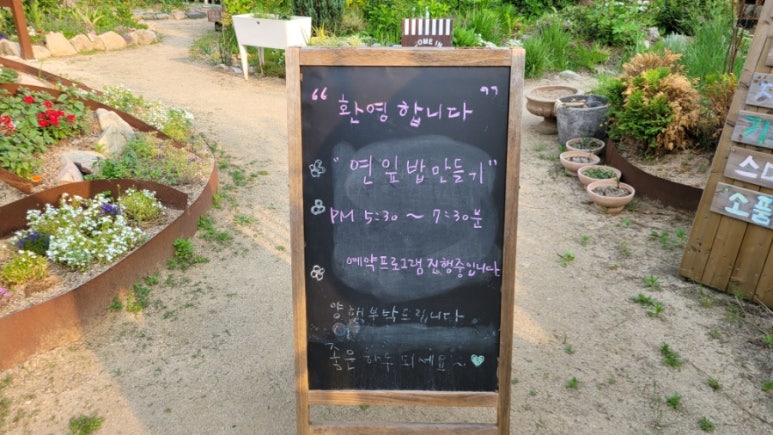 COME IN
" 환영합니다 "
" 연잎밥만들기 "
PM 5:30 ~ 7:30분
예약프로그램진행중입니다
양해부탁드립니다
좋은 하루 되세요~
소풍